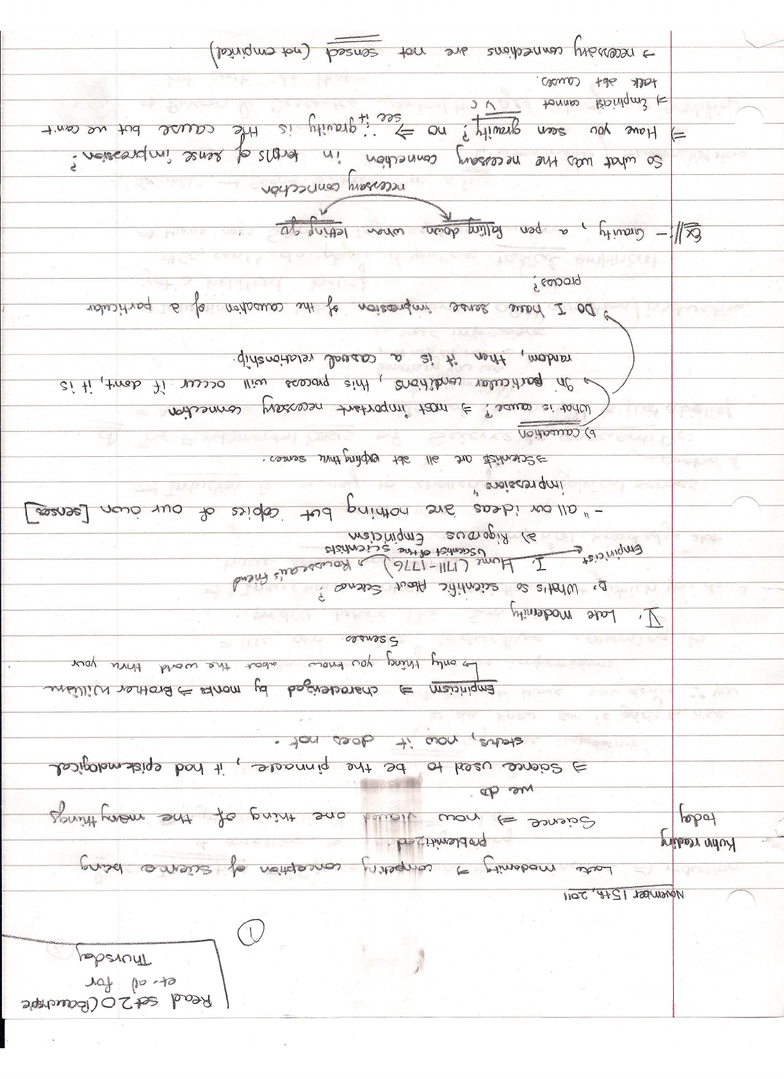 Read set 20 (Bauchspie
et-al for
Thursday
1
November 15th, 2011
Late modernity ⇒ competing conception of science being
problematized.
Kuhn reading
today
Science ⇒ now viewed one thing of the many things
we do
⇒ Science used to be the pinnacle, it had epistemological
status, now it does not.
Empiricism ⇒ characterized by monks ⇒ Brother William
↳ only thing you know about the world thru your
5 senses
V. Late modernity
B. What's so scientific About Science?
I. Hume (1711-1776) Rousseau's friend
Empiricist
↳ scientist of the scientists
a) Rigorous Empiricism
- "all our ideas are nothing but copies of our own [senses]
impressions"
⇒ Scientist are all abt expling thru senses.
b) causation
What is cause? ⇒ most important necessary connection
In particular conditions, this process will occur if dont, it is
random, then it is a casual relationship.
Do I have sense impression of the causation of a particular
process?
Ex//: - Gravity, a pen falling down when letting go
necessary connection
So what was the necessary connection in terms of sense impression?
⇒ Have you seen gravity? no ⇒ ∴ gravity is the cause but we can't
see it
⇒ Empiricist cannot
talk abt causes.
→ necessary connections are not sensed (not empirical)